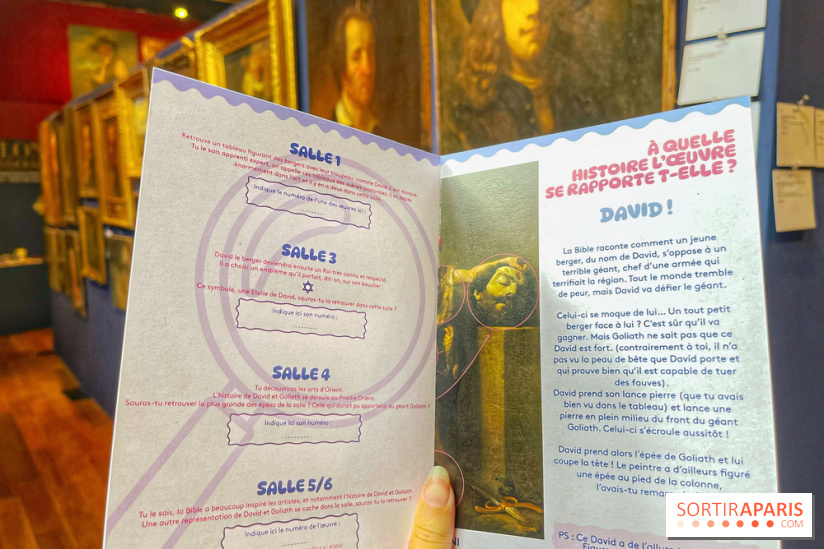 SALLE 1
Retrouve un tableau figurant des bergers avec leur troupeau, comme David à son époque.
Tu le sais apprenti expert, on appelle ces tableaux des scènes pastorales, il en existe
énormément dans l'art et il y en a deux dans cette salle.
Indique le numéro de l'une des œuvres ici :
SALLE 3
David le berger deviendra ensuite un Roi très connu et respecté.
Il a choisi un emblème qu'il portait, dit-on, sur son bouclier :
Ce symbole, une Etoile de David, sauras-tu la retrouver dans cette salle ?
Indique ici son numéro :
SALLE 4
Tu découvriras les arts d'Orient.
L'histoire de David et Goliath se déroule au Proche Orient.
Sauras-tu retrouver la plus grande des épées de la salle ? Celle qui aurait pu appartenir au géant Goliath ?
Indique ici son numéro :
SALLE 5/6
Tu le sais, la Bible a beaucoup inspiré les artistes, et notamment l'histoire de David et Goliath.
Une autre représentation de David et Goliath se cache dans la salle, sauras-tu la retrouver ?
Indique ici le numéro de l'œuvre :
À QUELLE
HISTOIRE L'ŒUVRE
SE RAPPORTE T-ELLE ?
DAVID !
La Bible raconte comment un jeune
berger, du nom de David, s'oppose à un
terrible géant, chef d'une armée qui
terrifiait la région. Tout le monde tremble
de peur, mais David va défier le géant.
Celui-ci se moque de lui... Un tout petit
berger face à lui ? C'est sûr qu'il va
gagner. Mais Goliath ne sait pas que ce
David est fort. (contrairement à toi, il n'a
pas vu la peau de bête que David porte et
qui prouve bien qu'il est capable de tuer
des fauves).
David prend son lance pierre (que tu avais
bien vu dans le tableau) et lance une
pierre en plein milieu du front du géant
Goliath. Celui-ci s'écroule aussitôt !
David prend alors l'épée de Goliath et lui
coupe la tête ! Le peintre a d'ailleurs figuré
une épée au pied de la colonne,
l'avais-tu
PS : Ce David a de
SORTIRAPARIS
.COM